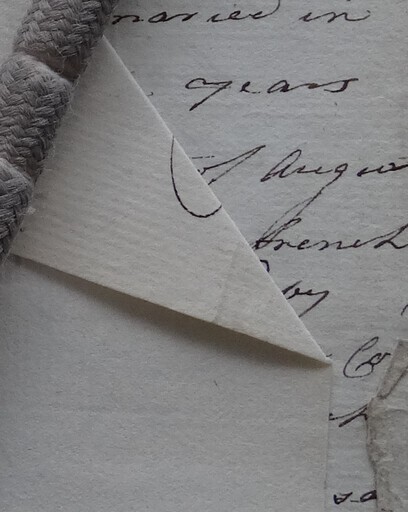 married in
years
of Augu
french
by
Co